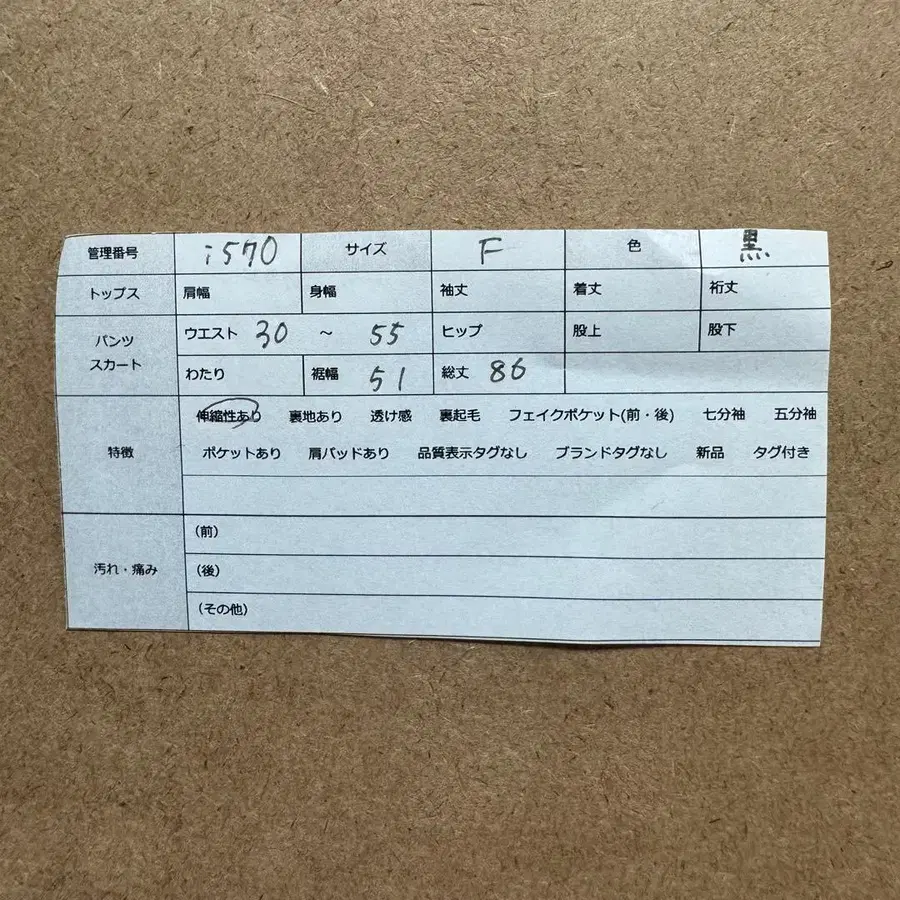 管理番号 i570 サイズ F 色 黒
トップス 肩幅 身幅 袖丈 着丈 裄丈
パンツ スカート ウエスト 30 ~ 55 ヒップ 股上 股下
わたり 裾幅 51 総丈 86
特徴 伸縮性あり 裏地あり 透け感 裏起毛 フェイクポケット(前・後) 七分袖 五分袖
ポケットあり 肩パッドあり 品質表示タグなし ブランドタグなし 新品 タグ付き
汚れ・痛み (前)
(後)
(その他)